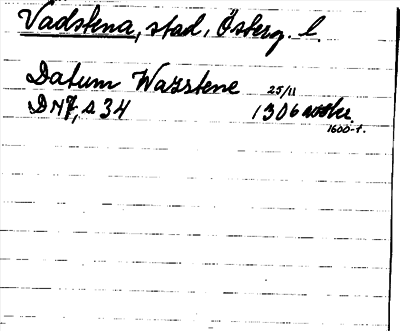 Vadstena, stad, Österg. l.
Datum Wazstene 25/11
DN 7, s 34 1306 avskr.
1600-t.